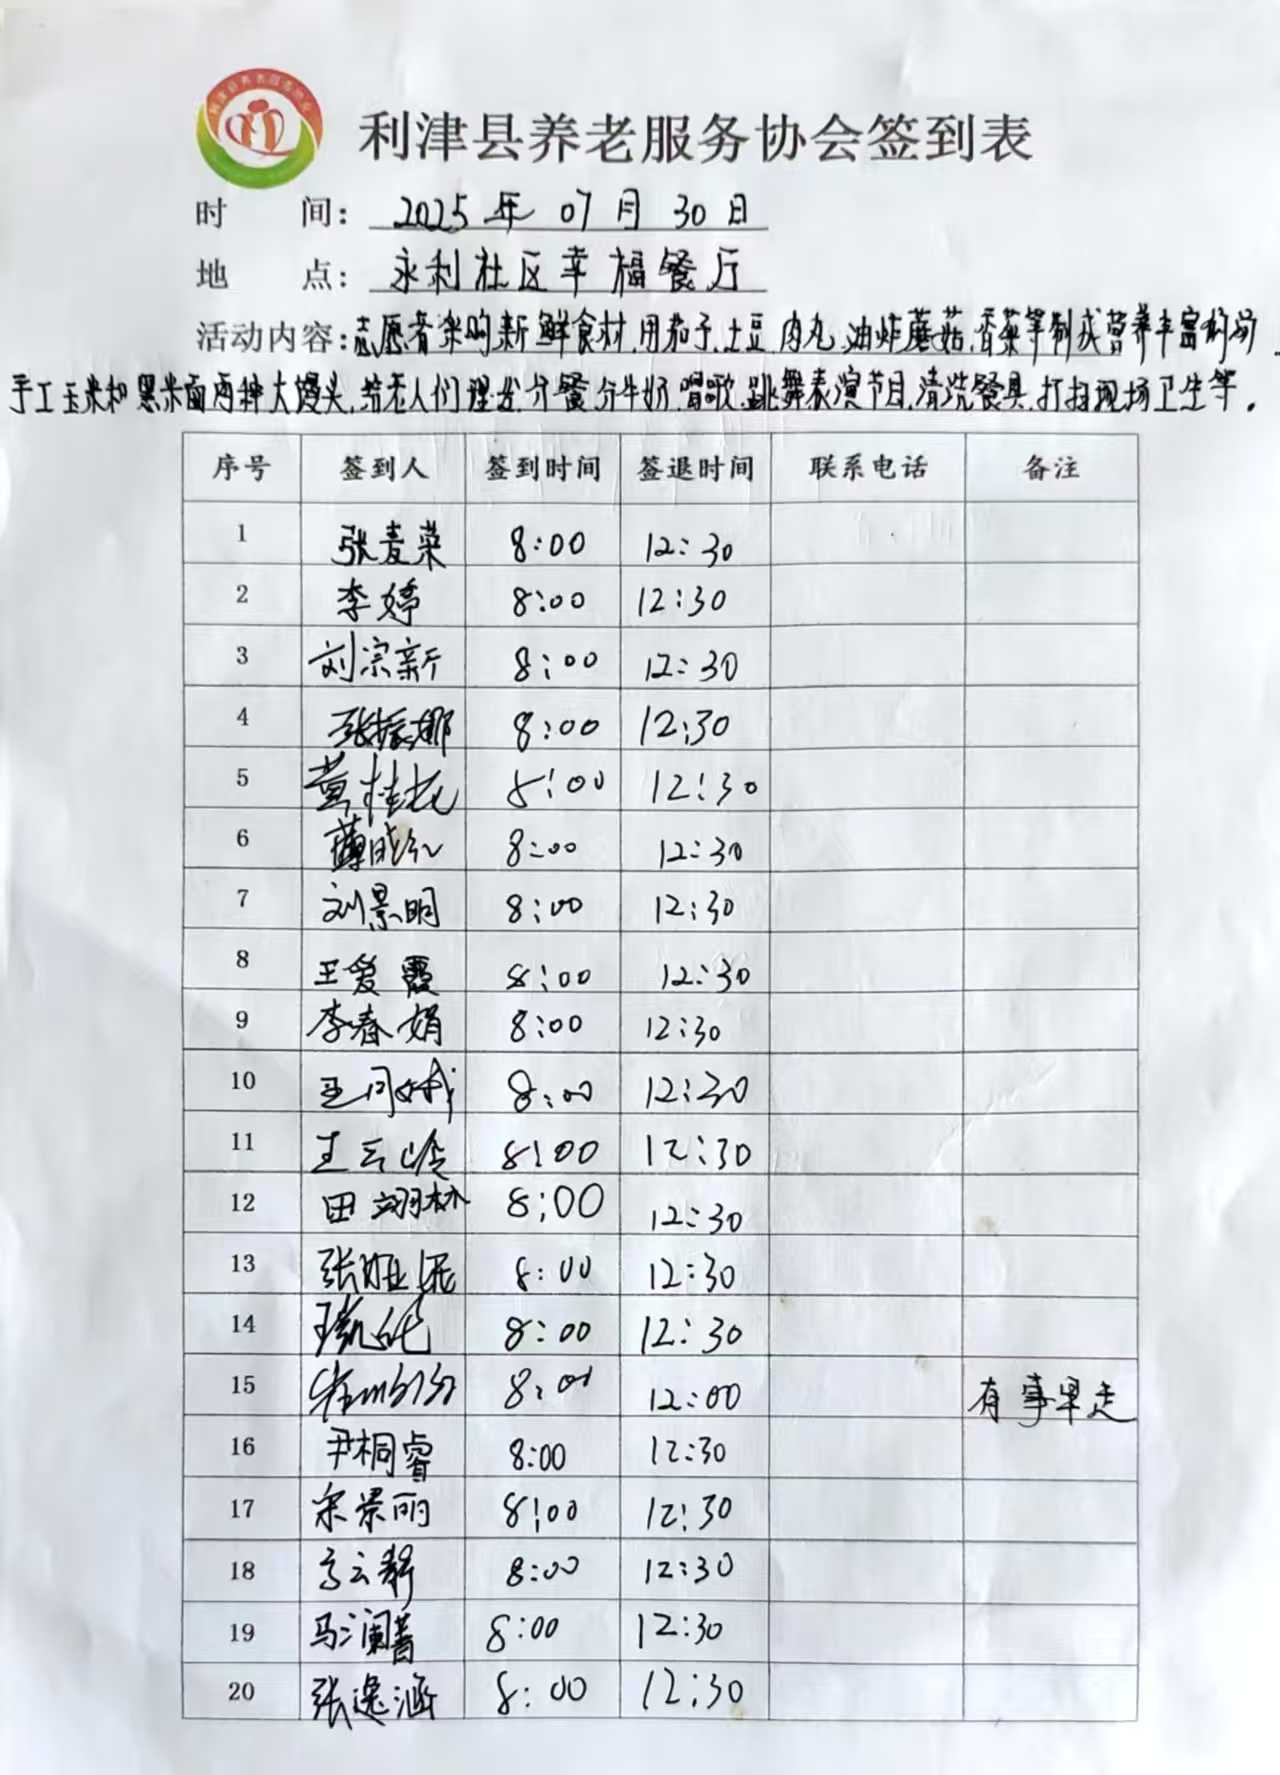 利津县养老服务协会签到表
时 间: 2025年07月30日
地 点: 永利社区幸福餐厅
活动内容:志愿者采购新鲜食材,用茄子、土豆、肉丸、油炸蘑菇、香菜等制成营养丰富的汤
手工玉米和黑米面两种大馒头,给老人们理发、分餐、分牛奶、唱歌、跳舞表演节目、清洗餐具、打扫现场卫生等。
序号 签到人 签到时间 签退时间 联系电话 备注
1 张麦菜 8:00 12:30
2 李婷 8:00 12:30
3 刘宗新 8:00 12:30
4 张振娜 8:00 12:30
5 黄桂花 8:00 12:30
6 薄晓红 8:00 12:30
7 刘景明 8:00 12:30
8 王爱霞 8:00 12:30
9 李春娟 8:00 12:30
10 王同娥 8:00 12:30
11 王云岭 8:00 12:30
12 田翊林 8:00 12:30
13 张 8:00 12:30
14 8:00 12:30
15 8:00 12:00 有事早走
16 尹桐睿 8:00 12:30
17 宋景丽 8:00 12:30
18 高云静 8:00 12:30
19 马澜菁 8:00 12:30
20 张逸涵 8:00 12:30